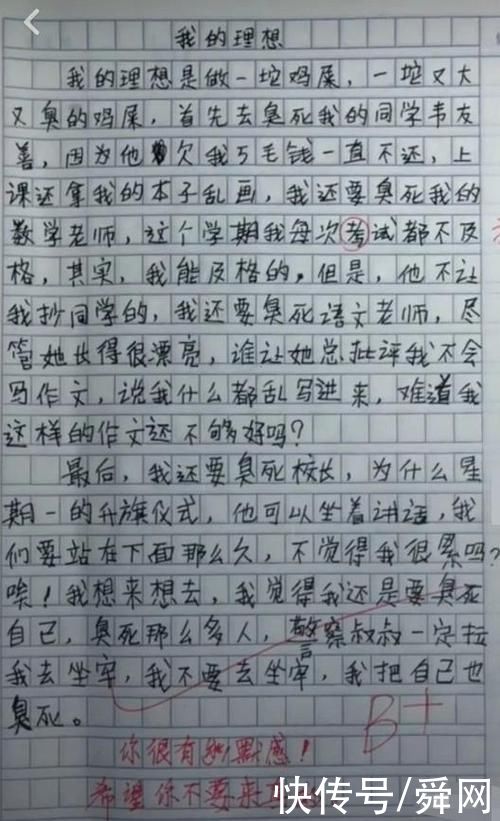 我的理想
我的理想是做一坨鸡屎，一坨又大
又臭的鸡屎，首先去臭死我的同学韦友
善，因为他欠我5毛钱一直不还，上
课还拿我的本子乱画，我还要臭死我的
数学老师，这个学期我每次考试都不及
格，其实，我能及格的，但是，他不让
我抄同学的，我还要臭死语文老师，尽
管她长得很漂亮，谁让她总批评我不会
写作文，说我什么都乱写进来，难道我
这样的作文还不够好吗？
最后，我还要臭死校长，为什么星
期一的升旗仪式，他可以坐着讲话，我
们要站在下面那么久，不觉得我很累吗？
唉！我想来想去，我觉得我还是要臭死
自己，臭死那么多人，警察叔叔一定拉
我去坐牢，我不要去坐牢，我把自己也
臭死。
B+
你很有幽默感！
希望你不要来
快传号/舜网